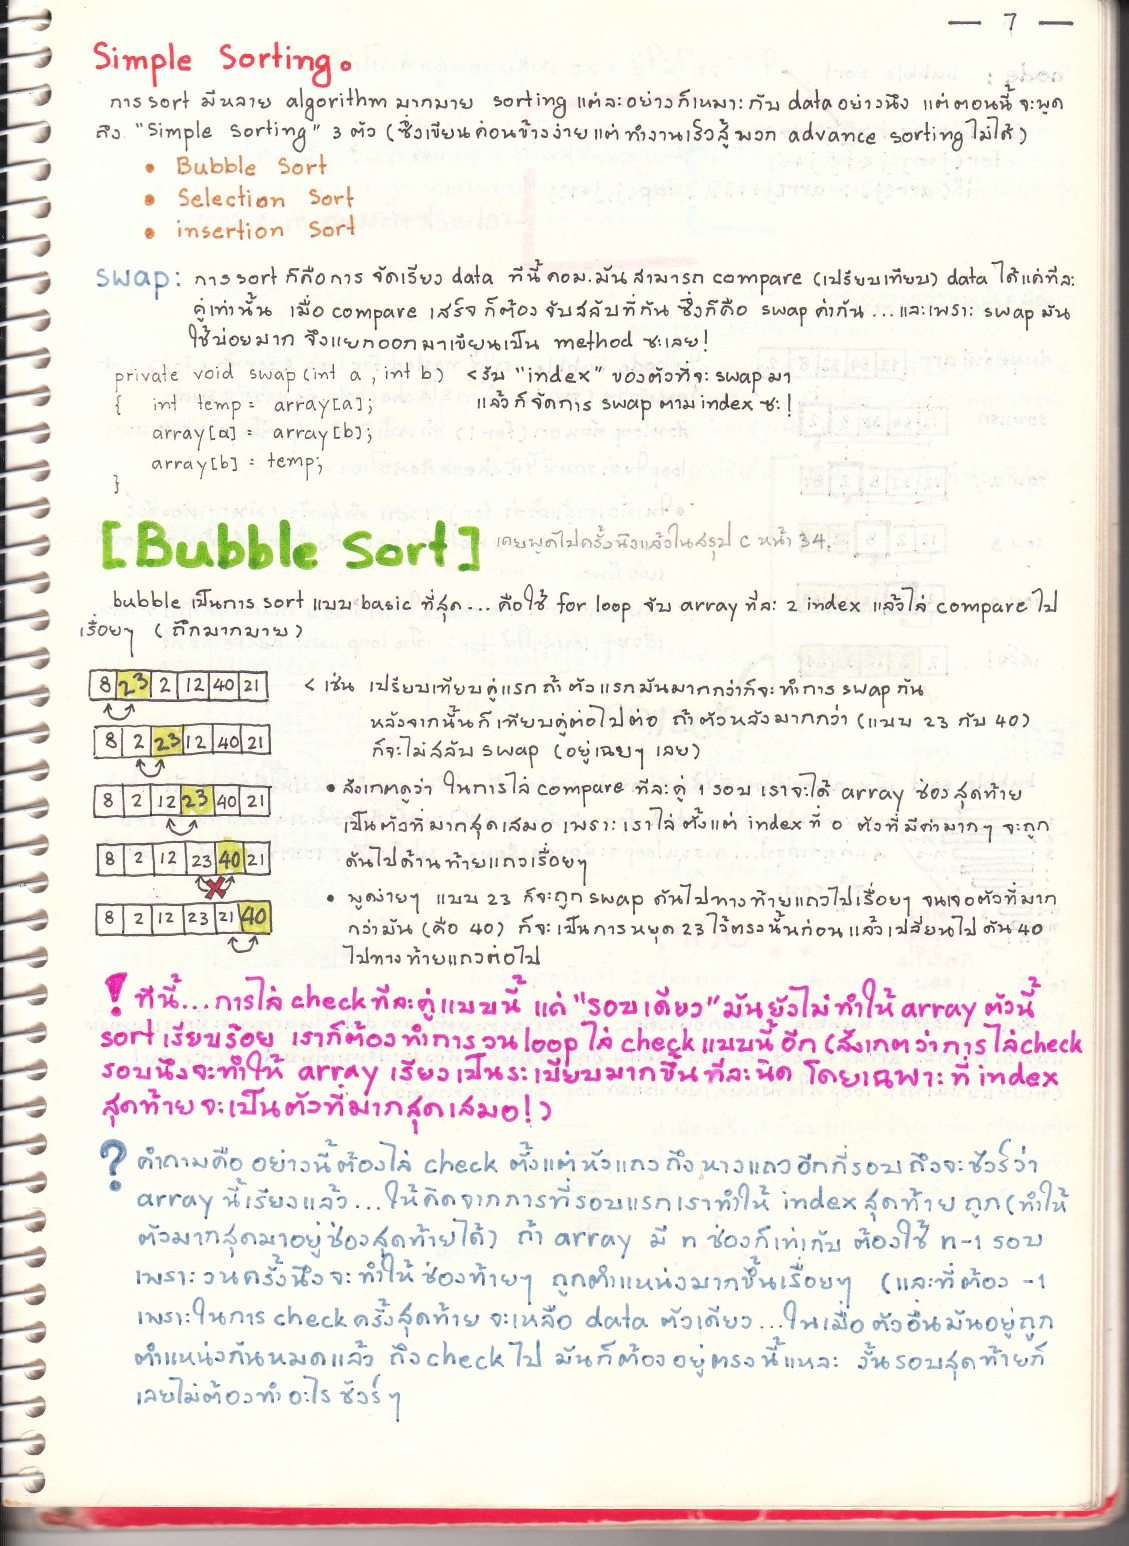 — 7 —
Simple Sorting.
การ sort มีหลาย algorithm มากมาย sorting แต่ละอย่างก็เหมาะกับ data อย่างนึง แต่ตอนนี้จะพูด
ถึง "Simple Sorting" 3 ตัว (ซึ่งเขียนค่อนข้างง่ายแต่ทำงานเร็วสู้พวก advance sorting ไม่ได้)
• Bubble Sort
• Selection Sort
• insertion Sort
swap: การ sort ก็คือการ จัดเรียง data ทีนี้ คอม.มันสามารถ compare (เปรียบเทียบ) data ได้แค่ทีละ
คู่เท่านั้น เมื่อ compare เสร็จ ก็ต้อง จับสลับที่กัน ซึ่งก็คือ swap ค่ากัน ...และเพราะ swap มัน
ใช้บ่อยมาก จึงแยกออกมาเขียนเป็น method ซะเลย!
private void swap(int a, int b) < รับ "index" ของตัวที่จะ swap มา
{ int temp = array[a]; แล้วก็จัดการ swap ตาม index ซะ!
array[a] = array[b];
array[b] = temp;
}
[Bubble Sort] เคยพูดไปครั้งนึงแล้วในสรุป C หน้า 34.
bubble เป็นการ sort แบบ basic ที่สุด... คือใช้ for loop จับ array ทีละ 2 index แล้วไล่ compare ไป
เรื่อยๆ (ถึกมากมาย)
8 23 2 12 40 21 < เช่น เปรียบเทียบคู่แรก ถ้าตัวแรกมันมากกว่าก็จะทำการ swap กัน
หลังจากนั้นก็เทียบคู่ต่อไปต่อ ถ้าตัวหลังมากกว่า (แบบ 23 กับ 40)
8 2 23 12 40 21 ก็จะไม่สลับ swap (อยู่เฉยๆ เลย)
8 2 12 23 40 21 • สังเกตดูว่า ในการไล่ compare ทีละคู่ 1 รอบ เราจะได้ array ช่องสุดท้าย
เป็นตัวที่มากสุดเสมอ เพราะเราไล่ตั้งแต่ index ที่ 0 ตัวที่มีค่ามากๆ จะถูก
8 2 12 23 40 21 ดันไปด้านท้ายแถวเรื่อยๆ
• พูดง่ายๆ แบบ 23 ก็จะถูก swap ดันไปทางท้ายแถวไปเรื่อยๆ จนเจอตัวที่มาก
8 2 12 23 21 40 กว่ามัน (คือ 40) ก็จะเป็นการหยุด 23 ไว้ตรงนั้นก่อน แล้วเปลี่ยนไปดัน 40
ไปทางท้ายแถวต่อไป
! ทีนี้...การไล่ check ทีละคู่แบบนี้ แค่ "รอบเดียว" มันยังไม่ทำให้ array ตัวนี้
sort เรียบร้อย เราก็ต้องทำการวน loop ไล่ check แบบนี้อีก (สังเกตว่าการไล่ check
รอบนึงจะทำให้ array เรียงเป็นระเบียบมากขึ้นทีละนิด โดยเฉพาะที่ index
สุดท้าย จะเป็นตัวที่มากสุดเสมอ!)
? คำถามคือ อย่างนี้ต้องไล่ check ตั้งแต่หัวแถวถึงหางแถวอีกกี่รอบ ถึงจะชัวร์ว่า
array นี้เรียงแล้ว...ให้คิดจากการที่รอบแรกเราทำให้ index สุดท้าย ถูก (ทำให้
ตัวมากสุดมาอยู่ช่องสุดท้ายได้) ถ้า array มี n ช่องก็เท่ากับ ต้องใช้ n-1 รอบ
เพราะวนครั้งนึงจะทำให้ ช่องท้ายๆ ถูกตำแหน่งมากขึ้นเรื่อยๆ (และที่ต้อง -1
เพราะในการ check ครั้งสุดท้าย จะเหลือ data ตัวเดียว...ในเมื่อตัวอื่นมันอยู่ถูก
ตำแหน่งกันหมดแล้ว ถึง check ไป มันก็ต้องอยู่ตรงนี้แหละ งั้นรอบสุดท้ายก็
เลยไม่ต้องทำอะไร ชัวร์ๆ